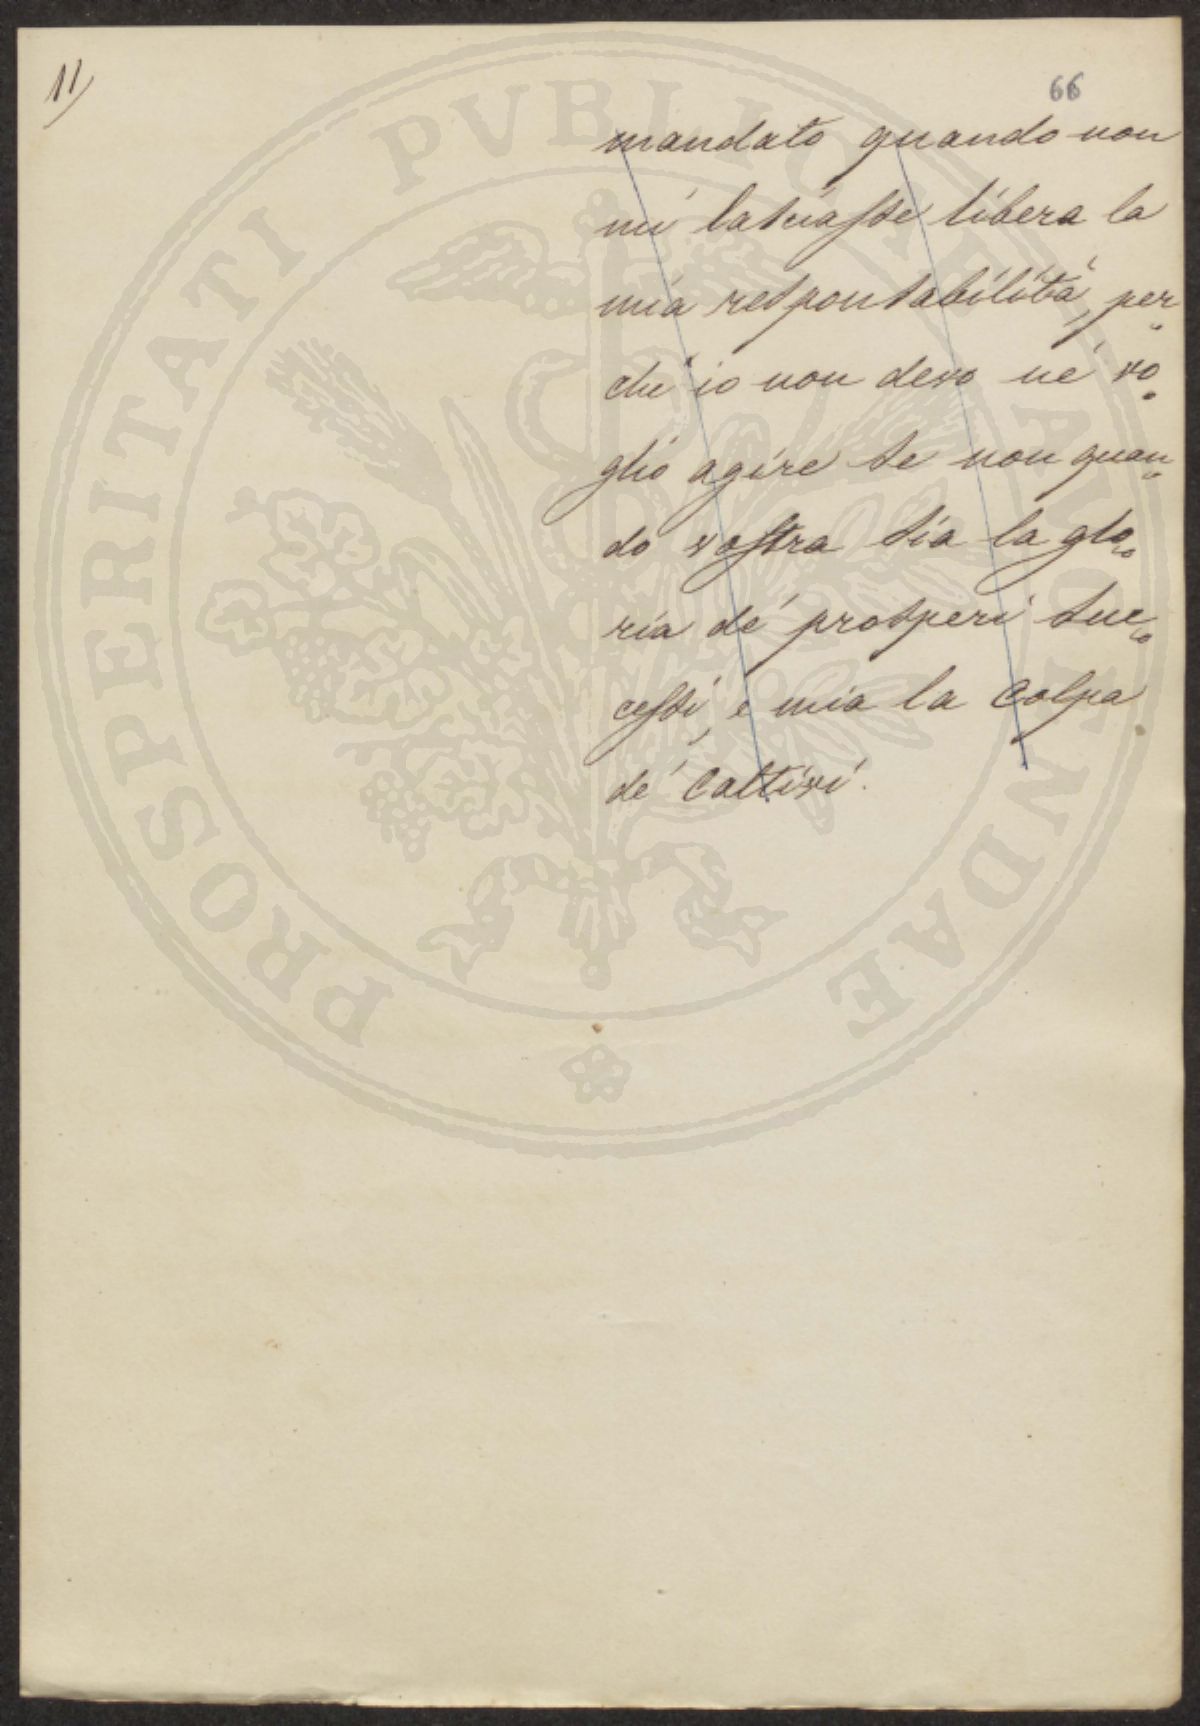 11)
66
mandato quando non
mi lasciaste libera la
mia responsabilità, per-
chè io non devo nè vo-
glio agire se non quan-
do vostra sia la glo-
ria de' prosperi suc-
cessi, e mia la colpa
de' cattivi.
PROSPERITATI PVBLICAE AVGENDAE